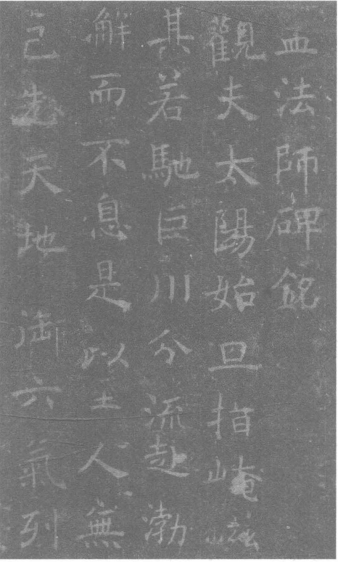 孟法師碑銘
觀夫太陽始旦指崦嵫
其若馳巨川分流赴渤
澥而不息是以至人無
己先天地 御六氣列